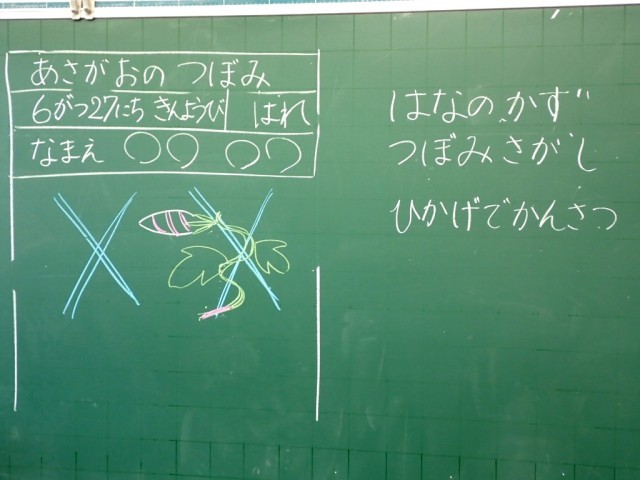 あさがおの つぼみ
6がつ27にち きんようび はれ
なまえ ○○ ○○
はなのかず
つぼみさがし
ひかげでかんさつ